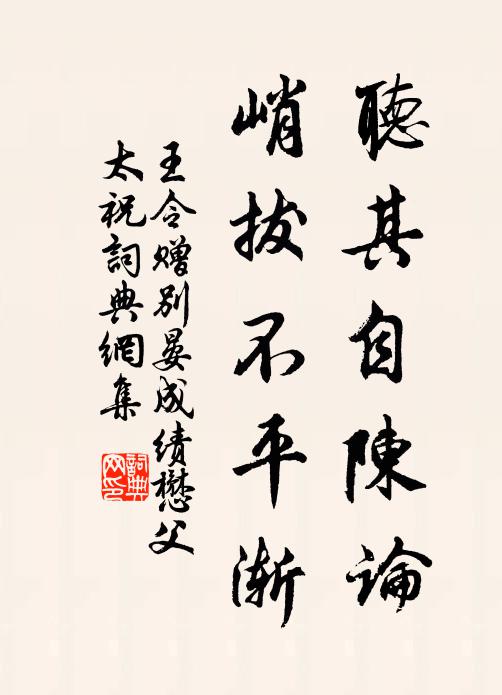 聽其自陳論
峭拔不平漸
王令贈別晏成績懋父
太祝詞典網集
詞典
网印